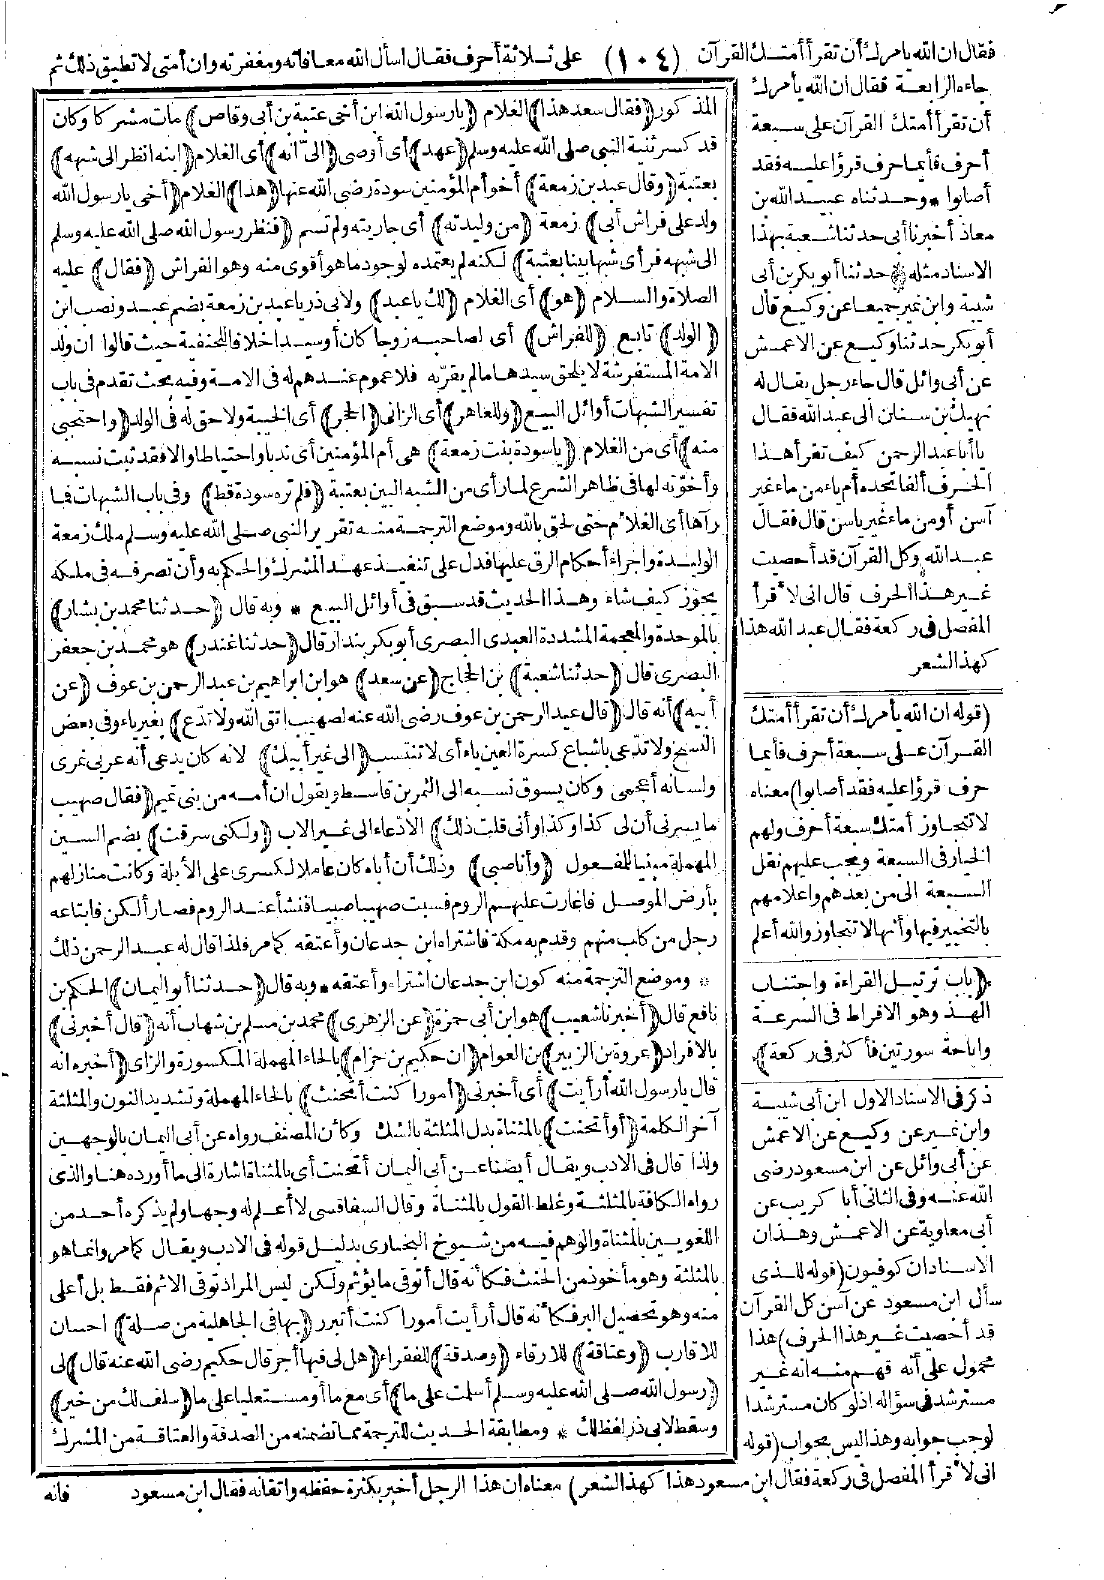 فقال ان الله يأمرك أن تقرأ أمتك القرآن (١٠٤) على ثلاثة أحرف فقال اسأل الله معافاته ومغفرته وان أمتى لا تطيق ذلك ثم
جاءه الرابعة فقال ان الله يأمرك
أن تقرأ أمتك القرآن على سبعة
أحرف فأيما حرف قرؤا عليه فقد
أصابوا * وحدثناه عبيد الله بن
معاذ أخبرنا أبى حدثنا شعبة بهذا
الاسناد مثله * حدثنا أبو بكر بن أبى
شيبة وابن نمير جميعا عن وكيع قال
أبو بكر حدثنا وكيع عن الاعمش
عن أبى وائل قال جاء رجل يقال له
نهيك بن سنان الى عبد الله فقال
يا أبا عبد الرحمن كيف تقرأ هذا
الحرف ألفا تجده أم ياء من ماء غير
آسن أو من ماء غير ياسن قال فقال
عبد الله وكل القرآن قد أحصيت
غير هذا الحرف قال انى لا قرأ
المفصل فى ركعة فقال عبد الله هذا
كهذ الشعر
(قوله ان الله يأمرك أن تقرأ أمتك
القرآن على سبعة أحرف فأيما
حرف قرؤا عليه فقد أصابوا) معناه
لا تتجاوز أمتك سبعة أحرف ولهم
الخيار فى السبعة ويجب عليهم نقل
السبعة الى من بعدهم واعلامهم
بالتخيير فيها وأنها لا تتجاوز والله أعلم
(باب ترتيل القراءة واجتناب
الهذ وهو الافراط فى السرعة
واباحة سورتين فأكثر فى ركعة)
ذكر فى الاسناد الاول ابن أبى شيبة
وابن نمير عن وكيع عن الاعمش
عن أبى وائل عن ابن مسعود رضى
الله عنه وفى الثانى أبا كريب عن
أبى معاوية عن الاعمش وهذان
الاسنادان كوفيون (قوله للذى
سأل ابن مسعود عن آسن كل القرآن
قد أحصيت غير هذا الحرف) هذا
محمول على أنه فهم منه انه غير
مسترشد فى سؤاله اذ لو كان مسترشدا
لوجب جوابه وهذا ليس بجواب (قوله
انى لا قرأ المفصل فى ركعة فقال ابن مسعود هذا كهذ الشعر) معناه ان هذا الرجل أخبر بكثرة حفظه واتقانه فقال ابن مسعود
المذكور (فقال سعد هذا) الغلام (يا رسول الله ابن أخى عتبة بن أبى وقاص) مات مشركا وكان
قد كسر ثنية النبى صلى الله عليه وسلم (عهد) أى أوصى (الىّ انه) أى الغلام (ابنه انظر الى شبهه)
بعتبة (وقال عبد بن زمعة) أخو أم المؤمنين سودة رضى الله عنها (هذا) الغلام (أخى يا رسول الله
ولد على فراش أبى) زمعة (من وليدته) أى جاريته ولم تسم (فنظر رسول الله صلى الله عليه وسلم
الى شبهه فرأى شبها بينا بعتبة) لكنه لم يعتمده لوجود ما هو أقوى منه وهو الفراش (فقال) عليه
الصلاة والسلام (هو) أى الغلام (لك يا عبد) ولابى ذر يا عبد بن زمعة بضم عبد ونصب ابن
(الولد) تابع (للفراش) أى لصاحبه زوجا كان أو سيدا خلافا للحنفية حيث قالوا ان ولد
الامة المستفرشة لا يلحق سيدها ما لم يقر به فلا عموم عندهم له فى الامة وفيه بحث تقدم فى باب
تفسير الشبهات أوائل البيع (وللعاهر) أى الزانى (الحجر) أى الخيبة ولا حق له فى الولد (واحتجبى
منه) أى من الغلام (يا سودة بنت زمعة) هى أم المؤمنين أى ندبا واحتياطا والا فقد ثبت نسبه
وأخوته لها فى ظاهر الشرع لما رأى من الشبه البين بعتبة (فلم تره سودة قط) وفى باب الشبهات فما
رآها أى الغلام حتى لحق بالله وموضع الترجمة منه تقرير النبى صلى الله عليه وسلم ملك زمعة
الوليدة واجراء أحكام الرق عليها فدل على تنفيذ عهد المشرك والحكم به وأن تصرفه فى ملكه
يجوز كيف شاء وهذا الحديث قد سبق فى أوائل البيع * وبه قال (حدثنا محمد بن بشار)
بالموحدة والمعجمة المشددة العبدى البصرى أبو بكر بندار قال (حدثنا غندر) هو محمد بن جعفر
البصرى قال (حدثنا شعبة) بن الحجاج (عن سعد) هو ابن ابراهيم بن عبد الرحمن بن عوف (عن
أبيه) أنه قال (قال عبد الرحمن بن عوف رضى الله عنه لصهيب اتق الله ولا تدّع) بغير ياء وفى بعض
النسخ ولا تدّعى باشباع كسرة العين ياء أى لا تنتسب (الى غير أبيك) لانه كان يدعى أنه عربى غرى
ولسانه أعجمى وكان يسوق نسبه الى النمر بن قاسط ويقول ان أمه من بنى تميم (فقال صهيب
ما يسرنى أن لى كذا وكذا وأنى قلت ذلك) الادعاء الى غير الاب (ولكنى سرقت) بضم السين
المهملة مبنيا للمفعول (وأنا صبى) وذلك أن أباه كان عاملا لكسرى على الأبلة وكانت منازلهم
بأرض الموصل فاغارت عليهم الروم فسبت صهيبا صبيا فنشأ عند الروم فصار ألكن فابتاعه
رجل من كلب منهم وقدم به مكة فاشتراه ابن جدعان وأعتقه كما مر فلذا قال له عبد الرحمن ذلك
* وموضع الترجمة منه كون ابن جدعان اشتراه وأعتقه * وبه قال (حدثنا أبو اليمان) الحكم بن
نافع قال (أخبرنا شعيب) هو ابن أبى حمزة (عن الزهرى) محمد بن مسلم بن شهاب أنه (قال أخبرنى)
بالافراد (عروة بن الزبير) بن العوام (ان حكيم بن حزام) بالحاء المهملة المكسورة والزاى (أخبره انه
قال يا رسول الله أرأيت) أى أخبرنى (أمورا كنت أتحنث) بالحاء المهملة وتشديد النون والمثلثة
آخر الكلمة (أو أتحنت) بالمثناة بدل المثلثة بالشك وكأن المصنف رواه عن أبى اليمان بالوجهين
ولذا قال فى الادب ويقال أيضا عن أبى اليمان أتحنت أى بالمثناة اشارة الى ما أورده هنا والذى
رواه الكافة بالمثلثة وغلط القول بالمثناة وقال السفاقسى لا أعلم له وجها ولم يذكره أحد من
اللغويين بالمثناة والوهم فيه من شيوخ البخارى بدليل قوله فى الادب ويقال كما مر وانما هو
بالمثلثة وهو مأخوذ من الحنث فكأنه قال أتوقى ما يؤثم ولكن ليس المراد توقى الاثم فقط بل أعلى
منه وهو تحصيل البر فكأنه قال أرأيت أمورا كنت أتبرر (بها فى الجاهلية من صلة) احسان
للاقارب (وعتاقة) للارقاء (وصدقة) للفقراء (هل لى فيها أجر قال حكيم رضى الله عنه قال) لى
(رسول الله صلى الله عليه وسلم أسلمت على ما) أى مع ما أو مستعليا على ما (سلف لك من خير)
وسقط لابى ذر لفظ لك * ومطابقة الحديث للترجمة مما تضمنه من الصدقة والعتاقة من المشرك
فانه